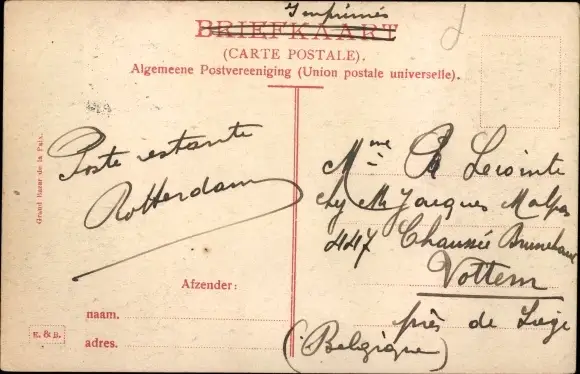 Imprimés
BRIEFKAART
(CARTE POSTALE).
Algemeene Postvereeniging (Union postale universelle).
Poste restante
Rotterdam
Grand Bazar de la Paix.
Mme R Lecointe
chez Mr Jacques Malpas
447 Chaussée Brunehaut
Vottem
près de Liège
(Belgique)
Afzender:
naam.
adres.
E. & B.